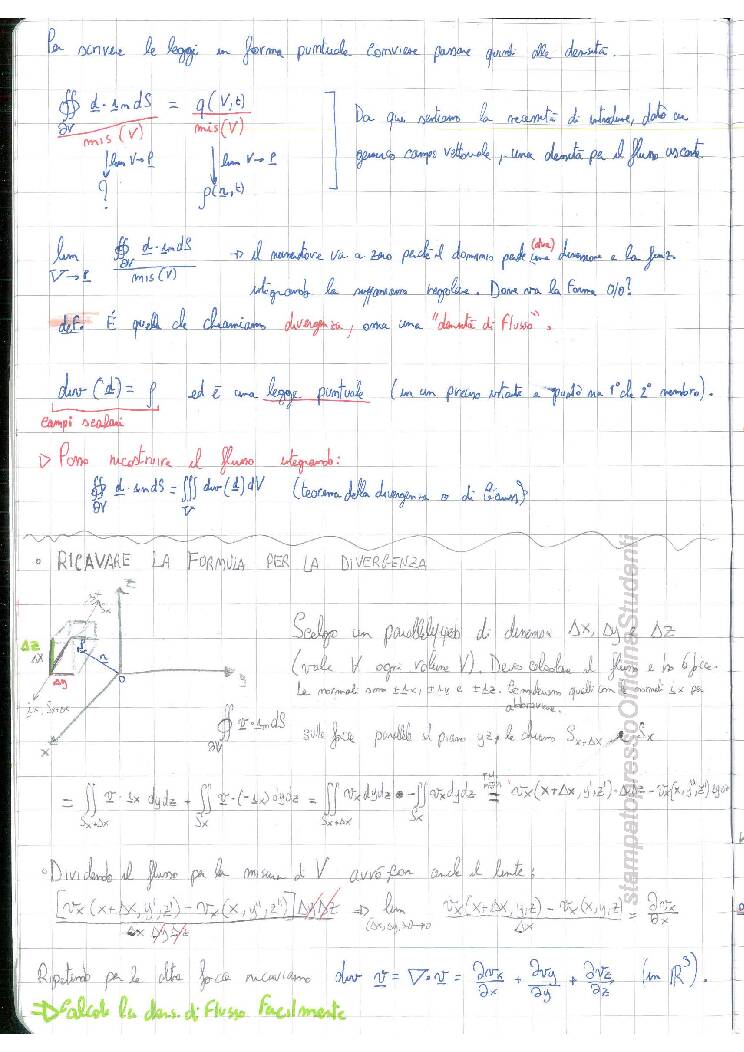 Per scrivere le leggi in forma puntuale conviene passare quindi alle densità.
∯∂V d · 1n dS / mis(V) = q(V,t) / mis(V)
Da qui sentiamo la necessità di introdurre, dato un
generico campo vettoriale, una densità per il flusso uscente.
↓ lim V→P ↓ lim V→P
? ρ(r,t)
lim V→P ∯∂V d · 1n dS / mis(V) → il numeratore va a zero perché il dominio perde una (altra) dimensione e la funz.
integranda la supponiamo regolare. Dove va la forma 0/0?
def. È quella che chiamiamo divergenza, ossia una "densità di flusso".
div(d) = ρ ed è una legge puntuale (in un preciso istante e punto sia 1° che 2° membro).
campi scalari
▷ Posso ricostruire il flusso integrando:
∯∂V d · 1n dS = ∭V div(d) dV (teorema della divergenza o di Gauss)
• RICAVARE LA FORMULA PER LA DIVERGENZA
z
Sx
Δz
Δx
P
r
Δy
O
y
1x, Sx+Δx
x
Scelgo un parallelepipedo di dimensioni Δx, Δy e Δz
(vale ∀ ogni volume V). Devo calcolare il flusso e ho 6 facce.
Le normali sono ±1x, ±1y e ±1z. Consideriamo quelli con le normali 1x per
abbreviare.
∯∂V v · 1n dS sulle facce parallele al piano yz, le chiamo Sx+Δx e Sx
= ∬Sx+Δx v · 1x dydz + ∬Sx v · (-1x) dydz = ∬Sx+Δx vx dydz - ∬Sx vx dydz = vx(x+Δx, y', z') · ΔyΔz - vx(x, y'', z'') ΔyΔz
• Dividendo il flusso per la misura di V avrò, con anche il limite:
[vx(x+Δx, y', z') - vx(x, y'', z'')] ΔyΔz / Δx Δy Δz ⇒ lim (Δx,Δy,Δz)→0 vx(x+Δx, y, z) - vx(x, y, z) / Δx = ∂vx/∂x
Ripetendo per le altre facce ricaviamo div v = ∇ · v = ∂vx/∂x + ∂vy/∂y + ∂vz/∂z (in ℝ³).
⇒ Calcolo la dens. di Flusso Facilmente
stampatopressoOfficinaStudenti